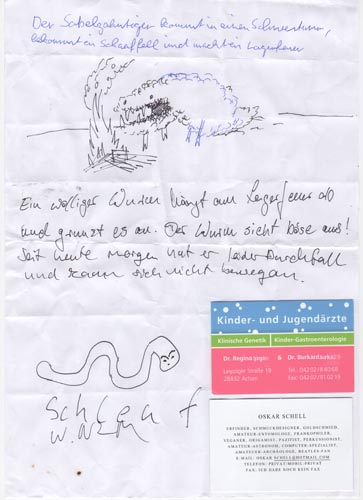 Der Säbelzahntiger kommt in einen Schneesturm,
bekommt ein Schaaffell und macht ein Lagerfeuer
Ein wolliger Wurm hängt am Lagerfeuer ab
und grunzt es an. Der Wurm sieht böse aus!
Seit heute morgen hat er leider Durchfall
und kann sich nicht bewegen.
Kinder- und Jugendärzte
Klinische Genetik Kinder-Gastroenterologie
Dr. Regina & Dr. Burkard
Leipziger Straße 18 Tel. 042 02/8 40 68
28832 Achim Fax: 042 02/91 02 19
OSKAR SCHELL
ERFINDER, SCHMUCKDESIGNER, GOLDSCHMIED,
AMATEUR-ENTOMOLOGE, FRANKOPHILER,
VEGANER, ORIGAMIST, PAZIFIST, PERKUSSIONIST,
AMATEUR-ASTRONOM, COMPUTER-SPEZIALIST,
AMATEUR-ARCHÄOLOGE, BEATLES-FAN
E-MAIL: OSKAR_SCHELL@HOTMAIL.COM
TELEFON: PRIVAT/MOBIL: PRIVAT
FAX: ICH HABE NOCH KEIN FAX